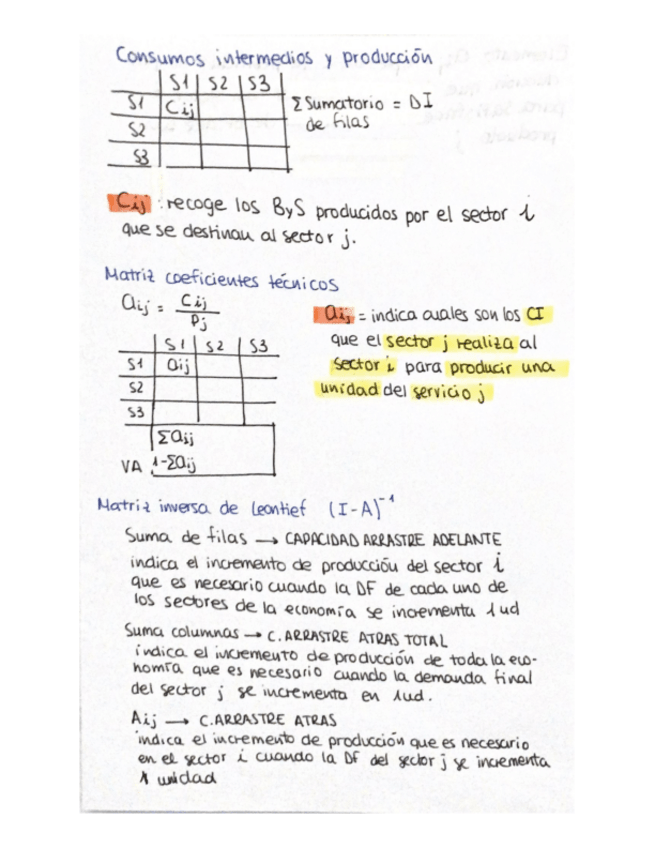 Consumos intermedios y producción
S1 | S2 | S3
S1 Cij
S2
S3
Σ Sumatorio = DI
de filas
Cij : recoge los ByS producidos por el sector i
que se destinan al sector j.
Matriz coeficientes técnicos
aij = Cij / Pj
S1 | S2 | S3
S1 aij
S2
S3
Σaij
VA 1-Σaij
aij = indica cuales son los CI
que el sector j realiza al
sector i para producir una
unidad del servicio j
Matriz inversa de leontief (I-A)⁻¹
Suma de filas → CAPACIDAD ARRASTRE ADELANTE
indica el incremento de producción del sector i
que es necesario cuando la DF de cada uno de
los sectores de la economía se incrementa 1 ud
Suma columnas → C. ARRASTRE ATRAS TOTAL
indica el incremento de producción de toda la eco-
nomía que es necesario cuando la demanda final
del sector j se incrementa en 1ud.
Aij → C. ARRASTRE ATRAS
indica el incremento de producción que es necesario
en el sector i cuando la DF del sector j se incrementa
1 unidad